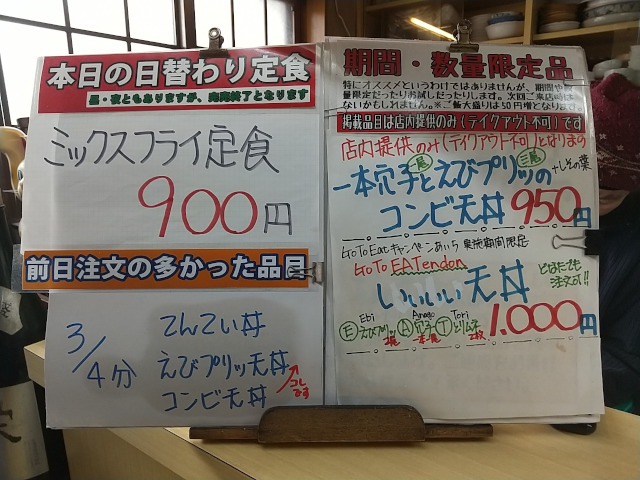 本日の日替わり定食
昼・夜ともありますが、完売終了となります
ミックスフライ定食
900円
前日注文の多かった品目
3/4分
てんてい丼
えびプリッ天丼
コンビ天丼
コレです
期間・数量限定品
特にオススメというわけではありませんが、期間や数
量限定だったり
次回ご来店時は
ないかもしれません。※ご飯大盛りは50円増となります
掲載品目は店内提供のみ(テイクアウト不可)です
店内提供のみ(テイクアウト不可)となります
一本穴子と一尾えびプリッの三尾+しその葉
コンビ天丼 950円
Go To Eatキャンペーンあいち 実施期間限定
Go To EATendon
いいいい天丼
どなたでも
注文OK!!
Ebi Anago Tori
Ⓔえびプリッ2尾 Ⓐ穴子一本 Ⓣとりムネ2枚
1.000円